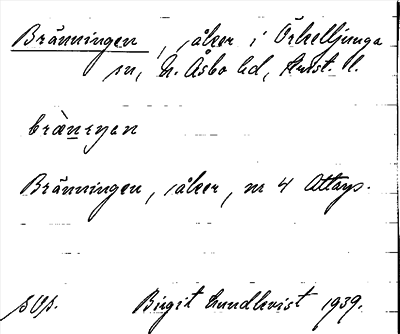 Bränningen, åker i Örkelljunga
sn, N. Åsbo hd, Krist. l.
bränenyen
Bränningen, åker, nr 4 Attarp.
Birgit Lundkvist 1939.